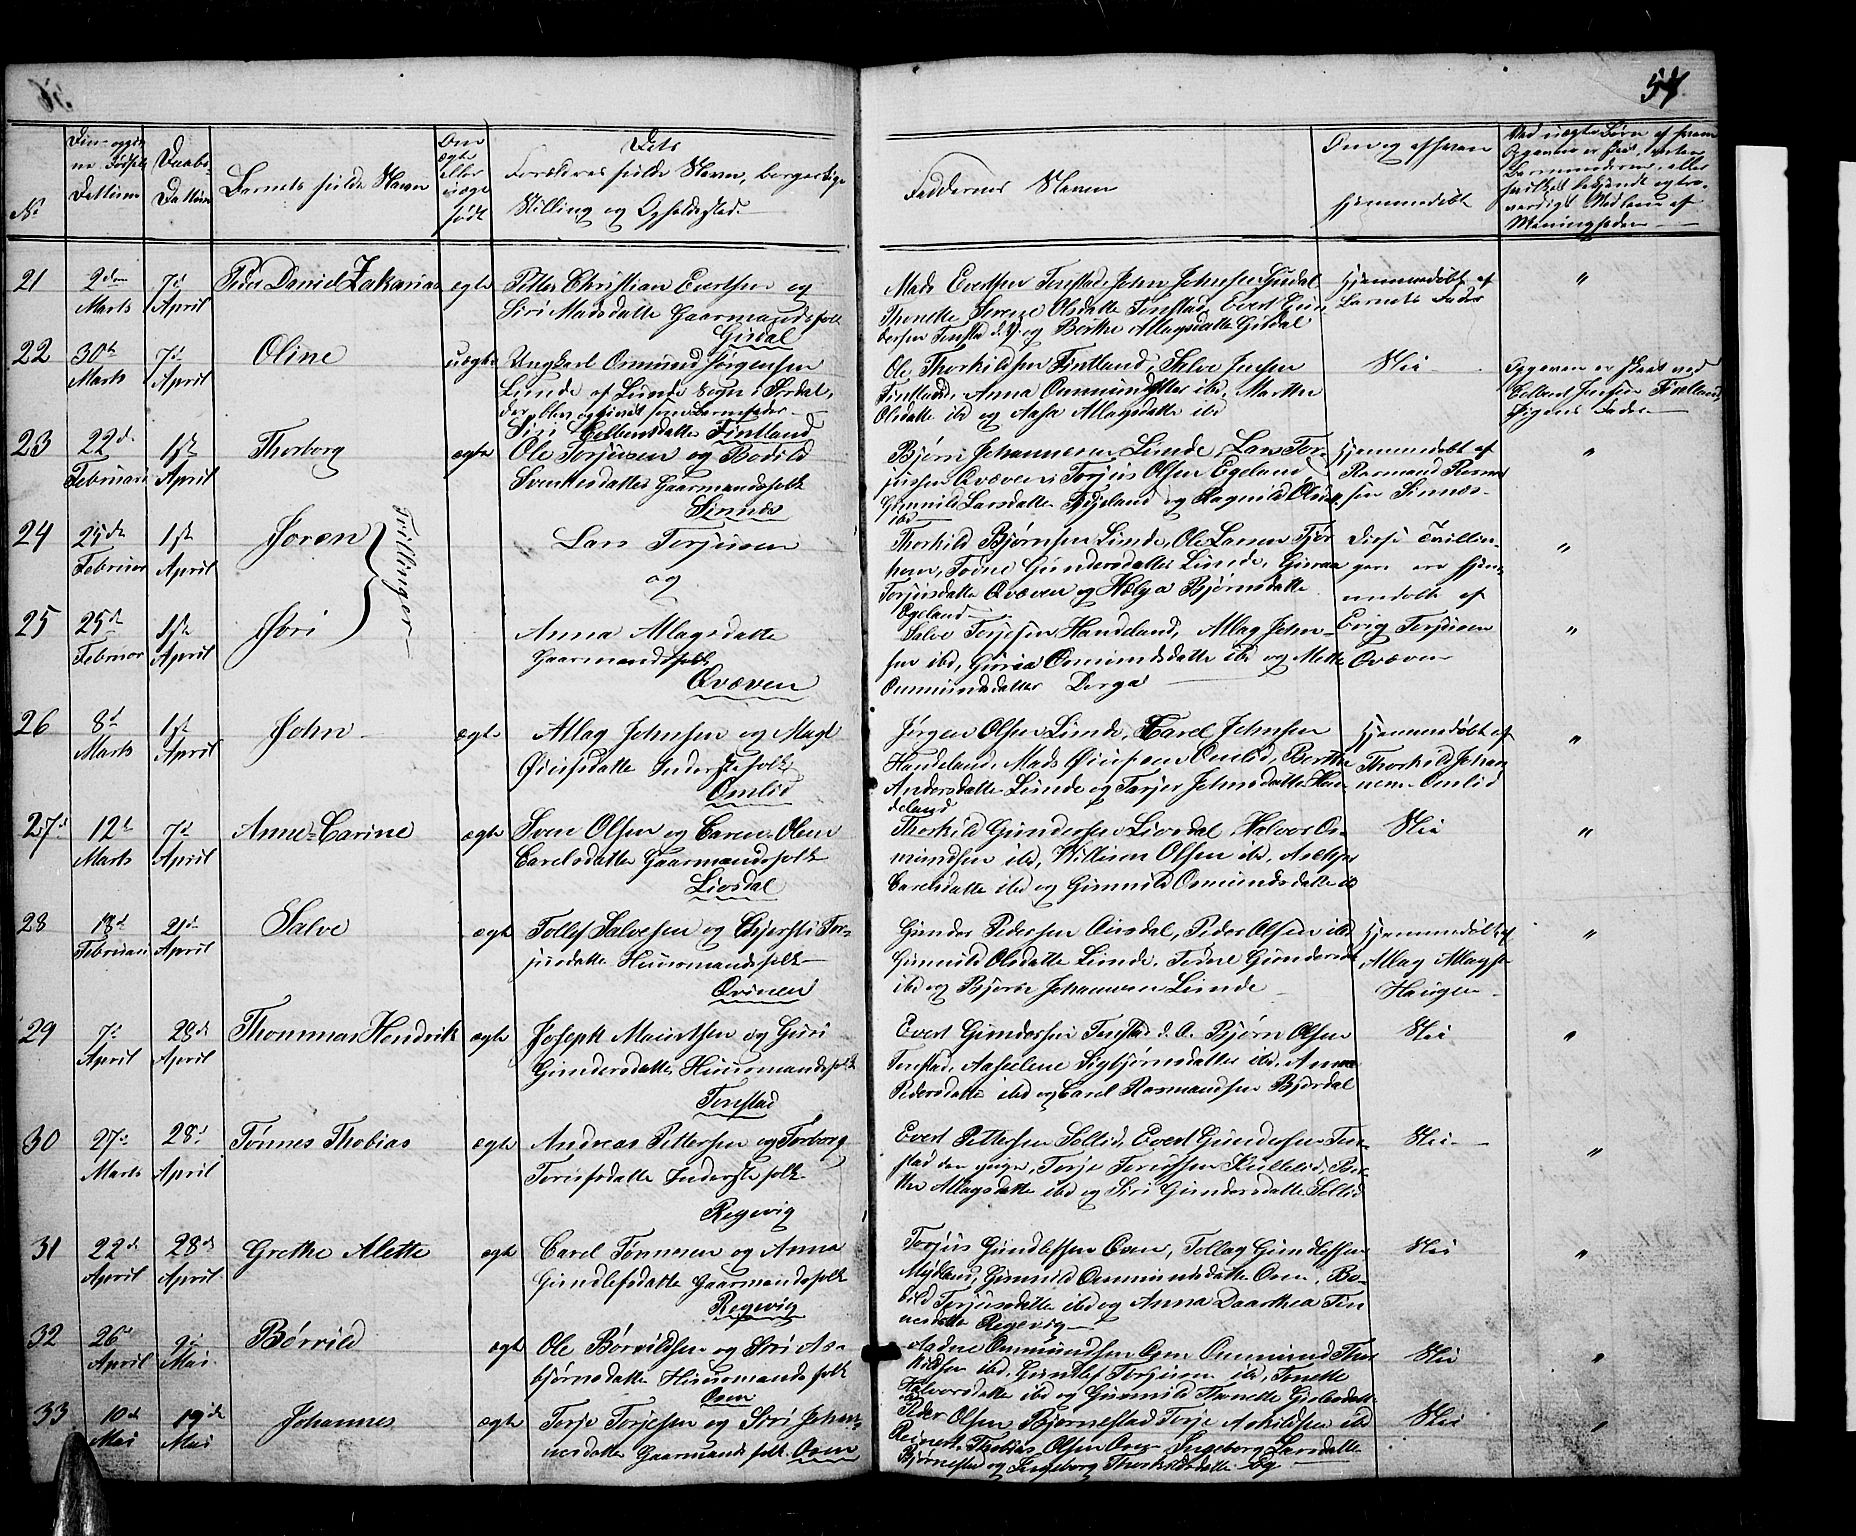 57.
No
Daabs
Dattum
Barnets fulde Navn
Om
ægte
eller
uægte
født
Dets
Forældres fulde Navn, borgerlige
Stilling og Opholdssted
Faddernes Navne
Om og af hvem
hjemmedøbt
21
2den
Marts
7d
April
Peder Daniel Zakarias
ægte
Petter Christian Evertsen og
Siri Madsdatte Gaarmandsfolk
Gisdal
Mads Evertsen Tonstad, John Johnsen Gysdal
Thonette Serene Olsdatte Tonstad, Evert Gun
dersen Tonstad d. Y. og Berthe Atlagsdatte Gisdal
Hjemmedøbt af
Barnets Fader
"
22
30te
Marts
7d
April
Oline
uægte
Ungkarl Osmund Jørgensen
Lunde af Lunde Sogn i Sirdal,
Siri Eelbertsdatte Fintland
Ole Thorkildsen Fintland, Salve Jensen
Fintland, Anna Ommundsdatte ibd, Marthe
Olsdatte ibd og Aasa Atlagsdatte ibd
Nei
Opgaven er skeet ved
Eelbert Jensen Fintland
Pigens Fader
23
22de
Februari
1ste
April
Thorborg
ægte
Ole Torjussen og Bodild
Svenkesdatter Gaarmandsfolk
Sinnes
Bjørn Johannesen Lunde, Lars Tor-
jussen Qvæven, Torjus Olsen Egeland
Gunnild Larsdatte Fidjeland og Ragnild Olsdr
ibd
Hjemmedøbt af
Rasmund Rasmund
sen Sinnæs
"
24
25de
Februar
1ste
April
Joren
Tvillinger
Lars Torjussen
og
Thorkild Bjørnsen Lunde, Ole Larsen Tjør
hom, Tone Gundersdatter Lunde, Guroa
Torjusdatte Qvæven og Hælga Bjørnsdatte
Egeland
Disse Tvillin-
gere ere hjem-
medøbte af
"
25
25de
Februar
1ste
April
Jori
Anna Atlagsdatte
Gaarmandsfolk
Qvæven
Salve Torjesen Handeland, Atlag John-
sen ibd, Guroa Osmundsdatte ibd og Mette
Ommundsdatter Dorga
Erig Torjussen
Qvæven
"
26
8d
Marts
1ste
April
John
ægte
Atlag Johnsen og Magl
Øivisdatte Inderstefolk
Omlid
Jørgen Olsen Lunde, Carel Johnsen
Handeland, Mads Øivisen Omlid, Berthe
Andersdatte Lunde og Torjer Johnsdatte Han
deland
Hjemmedøbt af
Thorkild Johan
nesen Omlid
"
27d
12te
Marts
7d
April
Anne-Carine
ægte
Sven Olsen og Caren-Olene
Carelsdatte Gaarmandsfolk
Liosdal
Thorkild Gundersen Liosdal, Halvor Os-
mundsen ibd, Willum Olsen ibd,
Carelsdatte ibd og Gunnild Osmundsdatte ib
Nei
"
28
18d
Februari
21d
April
Salve
ægte
Tollef Salvesen og Kjersti Tor-
jusdatte Huusmandsfolk
Qvinen
Gunder Pedersen Ousdal, Peder Olsen ibd
Gunnild Olsdatte Lunde, Tone Gundersdr
ibd og Bjørn Johannesen Lunde
Hjemmedøbt af
Atlag Atlagsen
Haugen
"
29
7d
April
28de
April
Thommas Hendrik
ægte
Joseph Mauritsen og Guri
Gundersdatte Huusmandsfolk
Tonstad
Evert Gundersen Tonstad d. Æ. Bjørn Olsen
Tonstad, Aaselene Sigbjørnsdatter ibd, Anna
Pedersdatte ibd og Carel Rasmundsen Bjordal
Nei
"
30
27de
Marts
28d
April
Tønnes Thobias
ægte
Andreas Pettersen og Torborg
Tonisdatte Inderstefolk
Regevig
Evert Pettersen Sollid, Evert Gundersen Ton-
stad den yngre, Torje Tonissen Kullelid, Ber-
the Atlagsdatte ibd og Siri Gundersdatte Sollid
Nei
"
31
22de
April
28de
April
Grethe Alette
ægte
Carel Tønnesen og Anna
Gundlefsdatte Gaarmandsfolk
Regevig
Torjus Gundlefsen Osen, Tollag Gundlefsen
Mydland, Gunnild Ommundsdatte Osen, Bo-
dild Torjusdatte ibd og Anna Daarthea Tøn
nesdatte Regevig
Nei
"
32
26d
April
2d
Mai
Børrild
ægte
Ole Børrildsen og Siri As-
bjørnsdatte Huusmandsfolk
Osen
Aadne Ommundsen Osen, Ommund Thor
kildsen ibd, Gundlef Torjusen ibd, Tonette
Halvorsdatte ibd og Gunnild Thonette Gislesdatte
Nei
"
33
10de
Mai
19de
Mai
Johannes
ægte
Torje Torjesen og Siri Johan-
nesdatte Gaarmandsfolk Osen
Peder Olsen Bjørnestad, Torje Askildsen ibd
Reinert Thobias Olsen Osen, Ingeborg Larsdatte
Bjørnestad og Ingeborg Thorkildsdatte
Nei
"